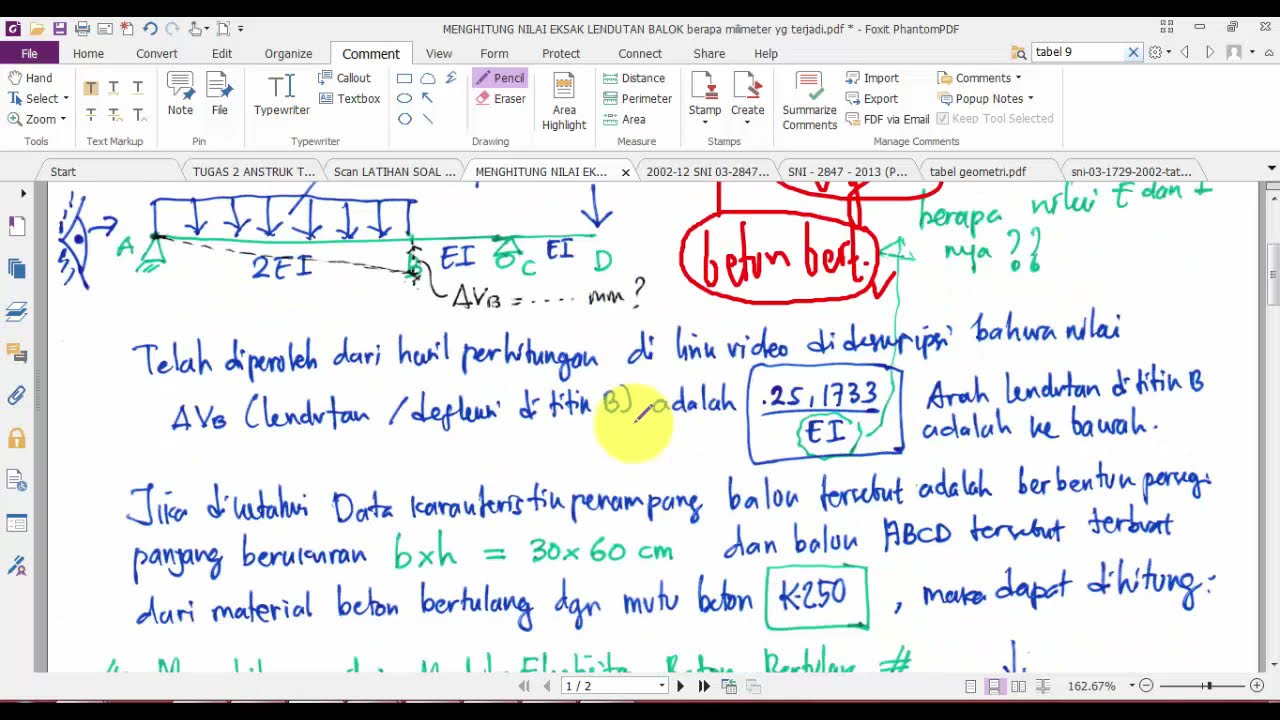 MENGHITUNG NILAI EKSAK LENDUTAN BALOK berapa milimeter yg terjadi.pdf * - Foxit PhantomPDF
File Home Convert Edit Organize Comment View Form Protect Connect Share Help tabel 9
Hand Select Zoom
Note File
Typewriter Callout Textbox
Pencil Eraser
Area Highlight
Distance Perimeter Area
Stamp Create
Summarize Comments
Import Export FDF via Email
Comments Popup Notes Keep Tool Selected
Text Markup Pin Typewriter Drawing Measure Stamps Manage Comments
Start TUGAS 2 ANSTRUK T... Scan LATIHAN SOAL ... MENGHITUNG NILAI EK... 2002-12 SNI 03-2847... SNI - 2847 - 2013 (P... tabel geometri.pdf sni-03-1729-2002-tat...
berapa nilai E dan I
nya ??
beton bert.
A 2EI B EI C EI D
ΔVB = ..... mm ?
Telah diperoleh dari hasil perhitungan di link video dideskripsi bahwa nilai
ΔVB (lendutan /defleksi di titik B) adalah .25,1733 / EI Arah lendutan di titik B
adalah ke bawah.
Jika diketahui Data karakteristik penampang balok tersebut adalah berbentuk persegi
panjang berukuran b x h = 30 x 60 cm dan balok ABCD tersebut terbuat
dari material beton bertulang dgn mutu beton K-250 , maka dapat dihitung:
1 / 2
162.67%